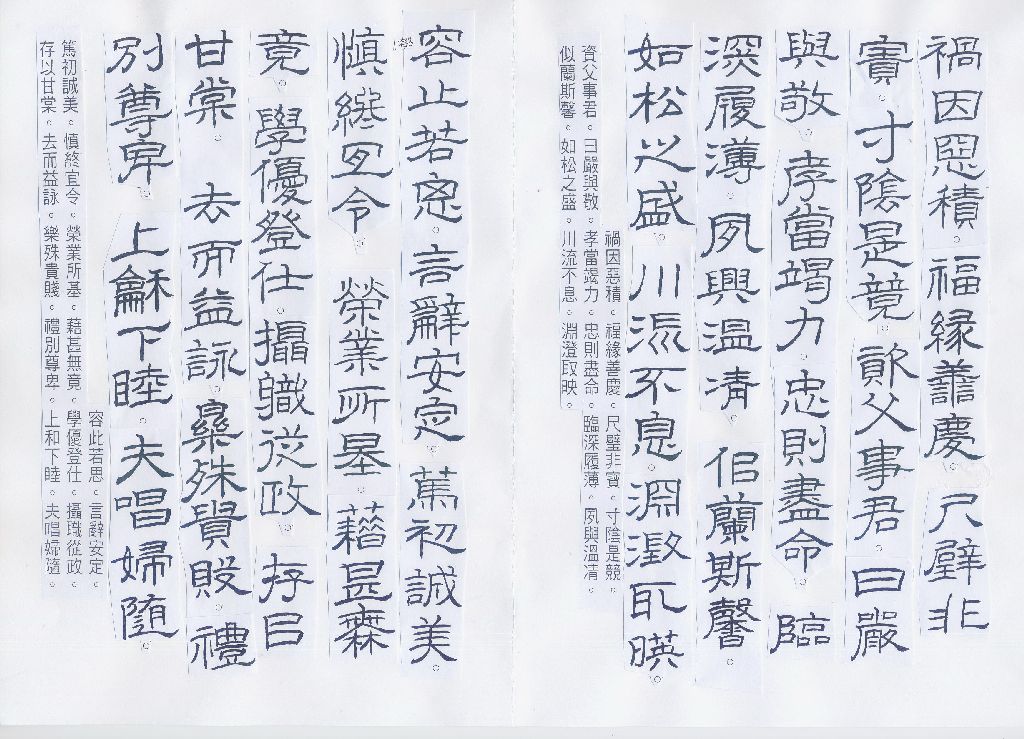 禍因惡積。福緣善慶。尺璧非
寶。寸陰是競。資父事君。曰嚴
與敬。孝當竭力。忠則盡命。臨
深履薄。夙興温凊。似蘭斯馨。
如松之盛。川流不息。淵澄取映。
禍因惡積。福緣善慶。尺璧非寶。寸陰是競
資父事君。曰嚴與敬。孝當竭力。忠則盡命。臨深履薄。夙興溫凊。
似蘭斯馨。如松之盛。川流不息。淵澄取映。
容止若思。言辭安定。篤初誠美
慎終宜令。榮業所基。藉甚無
竟。學優登仕。攝職從政。存以
甘棠。去而益詠。樂殊貴賤。禮
別尊卑。上和下睦。夫唱婦隨。
容此若思。言辭安定。
篤初誠美。慎終宜令。榮業所基。藉甚無竟。學優登仕。攝職從政。
存以甘棠。去而益詠。樂殊貴賤。禮別尊卑。上和下睦。夫唱婦隨。